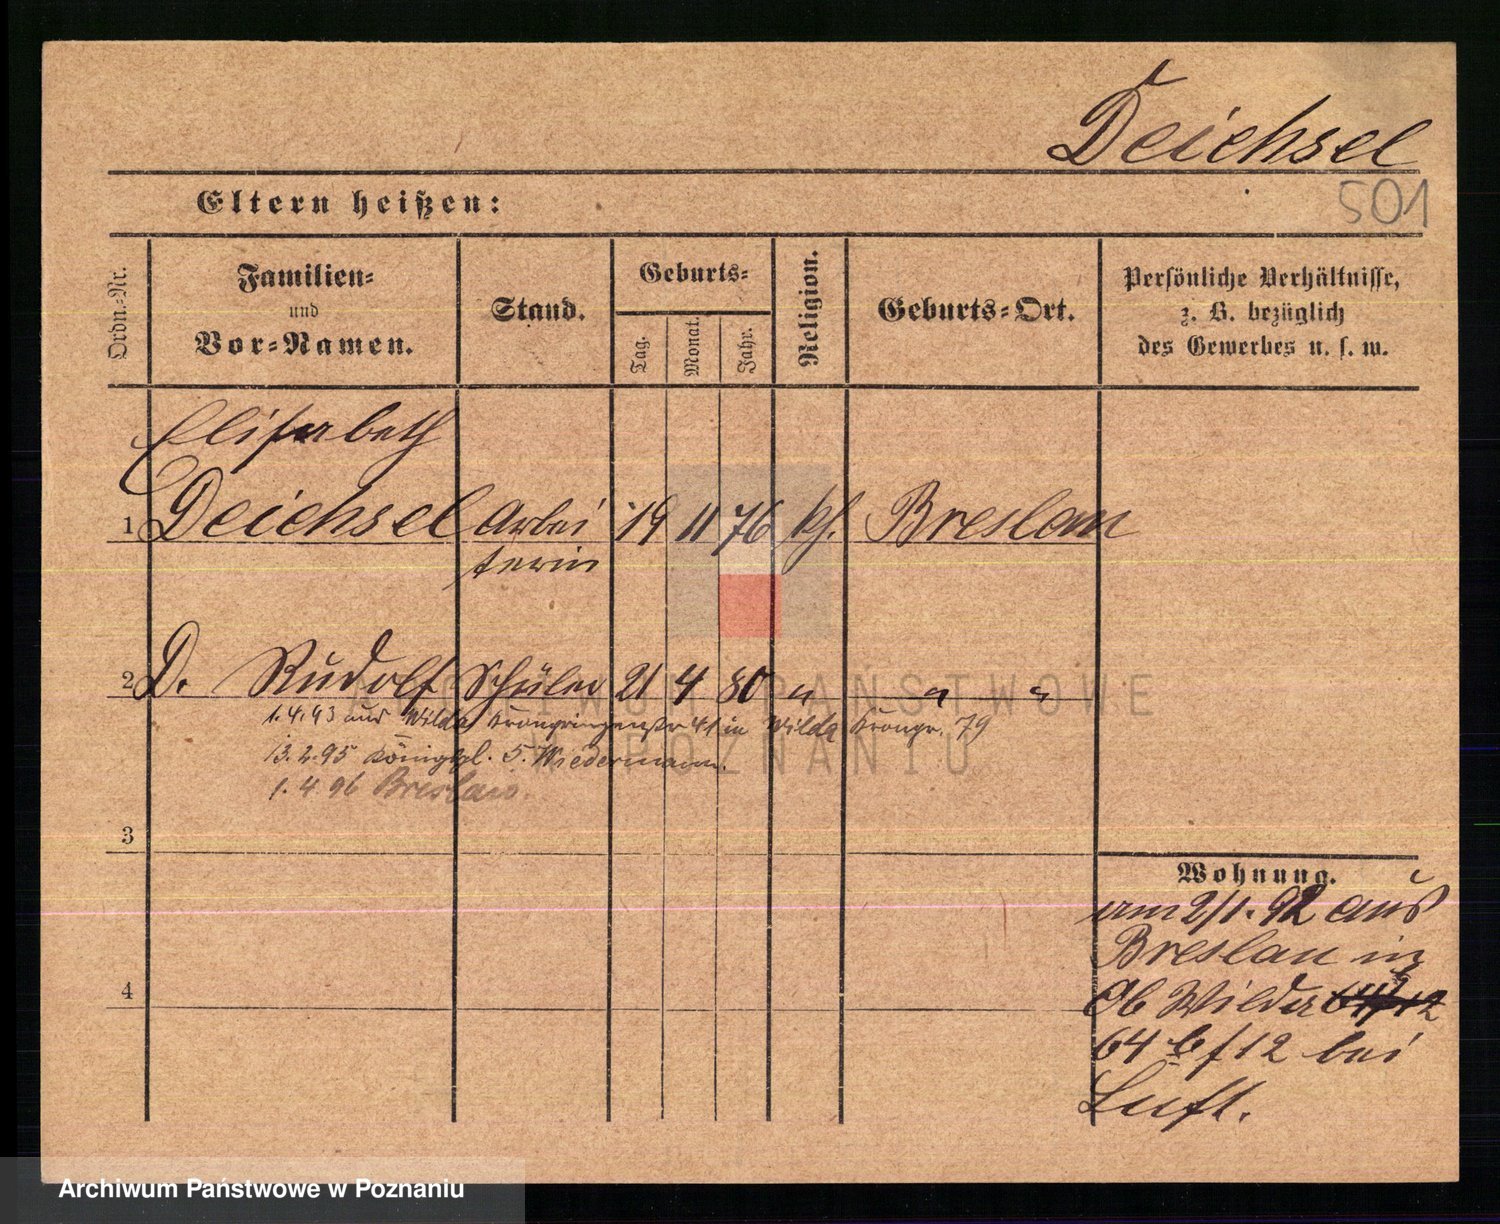 Deichsel
Eltern heißen:
501
Ordn.-Nr.
Familien-
und
Vor-Namen.
Stand.
Geburts-
Tag.
Monat.
Jahr.
Religion.
Geburts-Ort.
Persönliche Verhältnisse,
z. B. bezüglich
des Gewerbes u. s. w.
Elisabeth
1 Deichsel Arbei 19 11 76 kf. Breslau
terin
2 D. Rudolf Schüler 21 4 80 " " "
1.4.93 aus Wilda Kronprinzenstr 41 in Wilda Kronpr. 79
13.2.95 Königspl. 5. Wiedermann.
1.4.96 Breslau.
3
4
Wohnung.
am 2/1.92 aus
Breslau in
Ob Wilda
64 b/12 bei
Luft.
ARCHIWUM PAŃSTWOWE
W POZNANIU
Archiwum Państwowe w Poznaniu